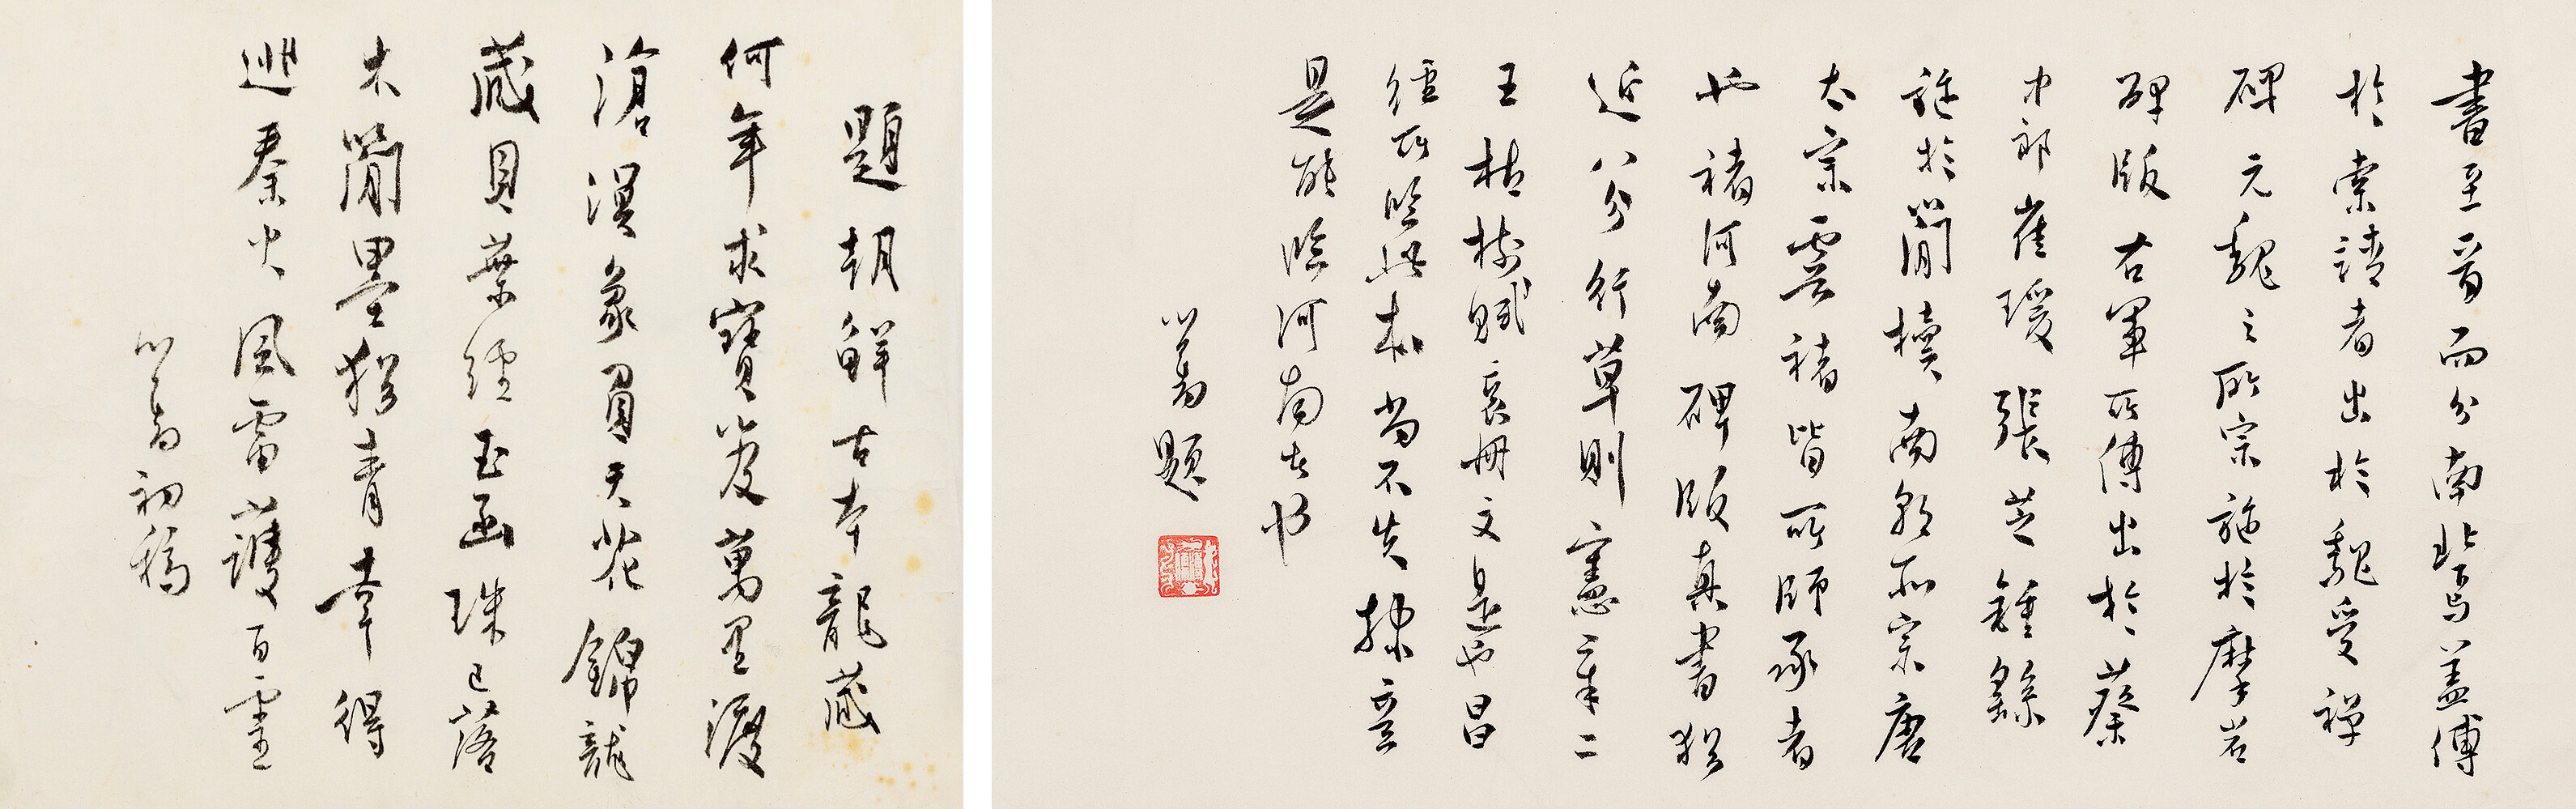 題朝鮮古本龍藏
何年求寶笈萬里渡
滄溟象罽天花錦龍
藏貝葉經玉函珠已落
木簡墨猶青幸得
逃秦火風雷護百靈
心畬初稿
書至晉而分南北焉蓋傳
於索靖者出於魏受禪
碑元魏之所宗施於摩岩
碑版右軍所傳出於蔡
中郎崔瑗張芝鍾繇
施於簡牘南朝所宗唐
太宗虞褚皆所師承者
也褚河南碑版真書猶
近八分行草則憲章二
王枯樹賦哀冊文是也昌
經所臨此本尚不失掾意
是能臨河南書者
心畬題